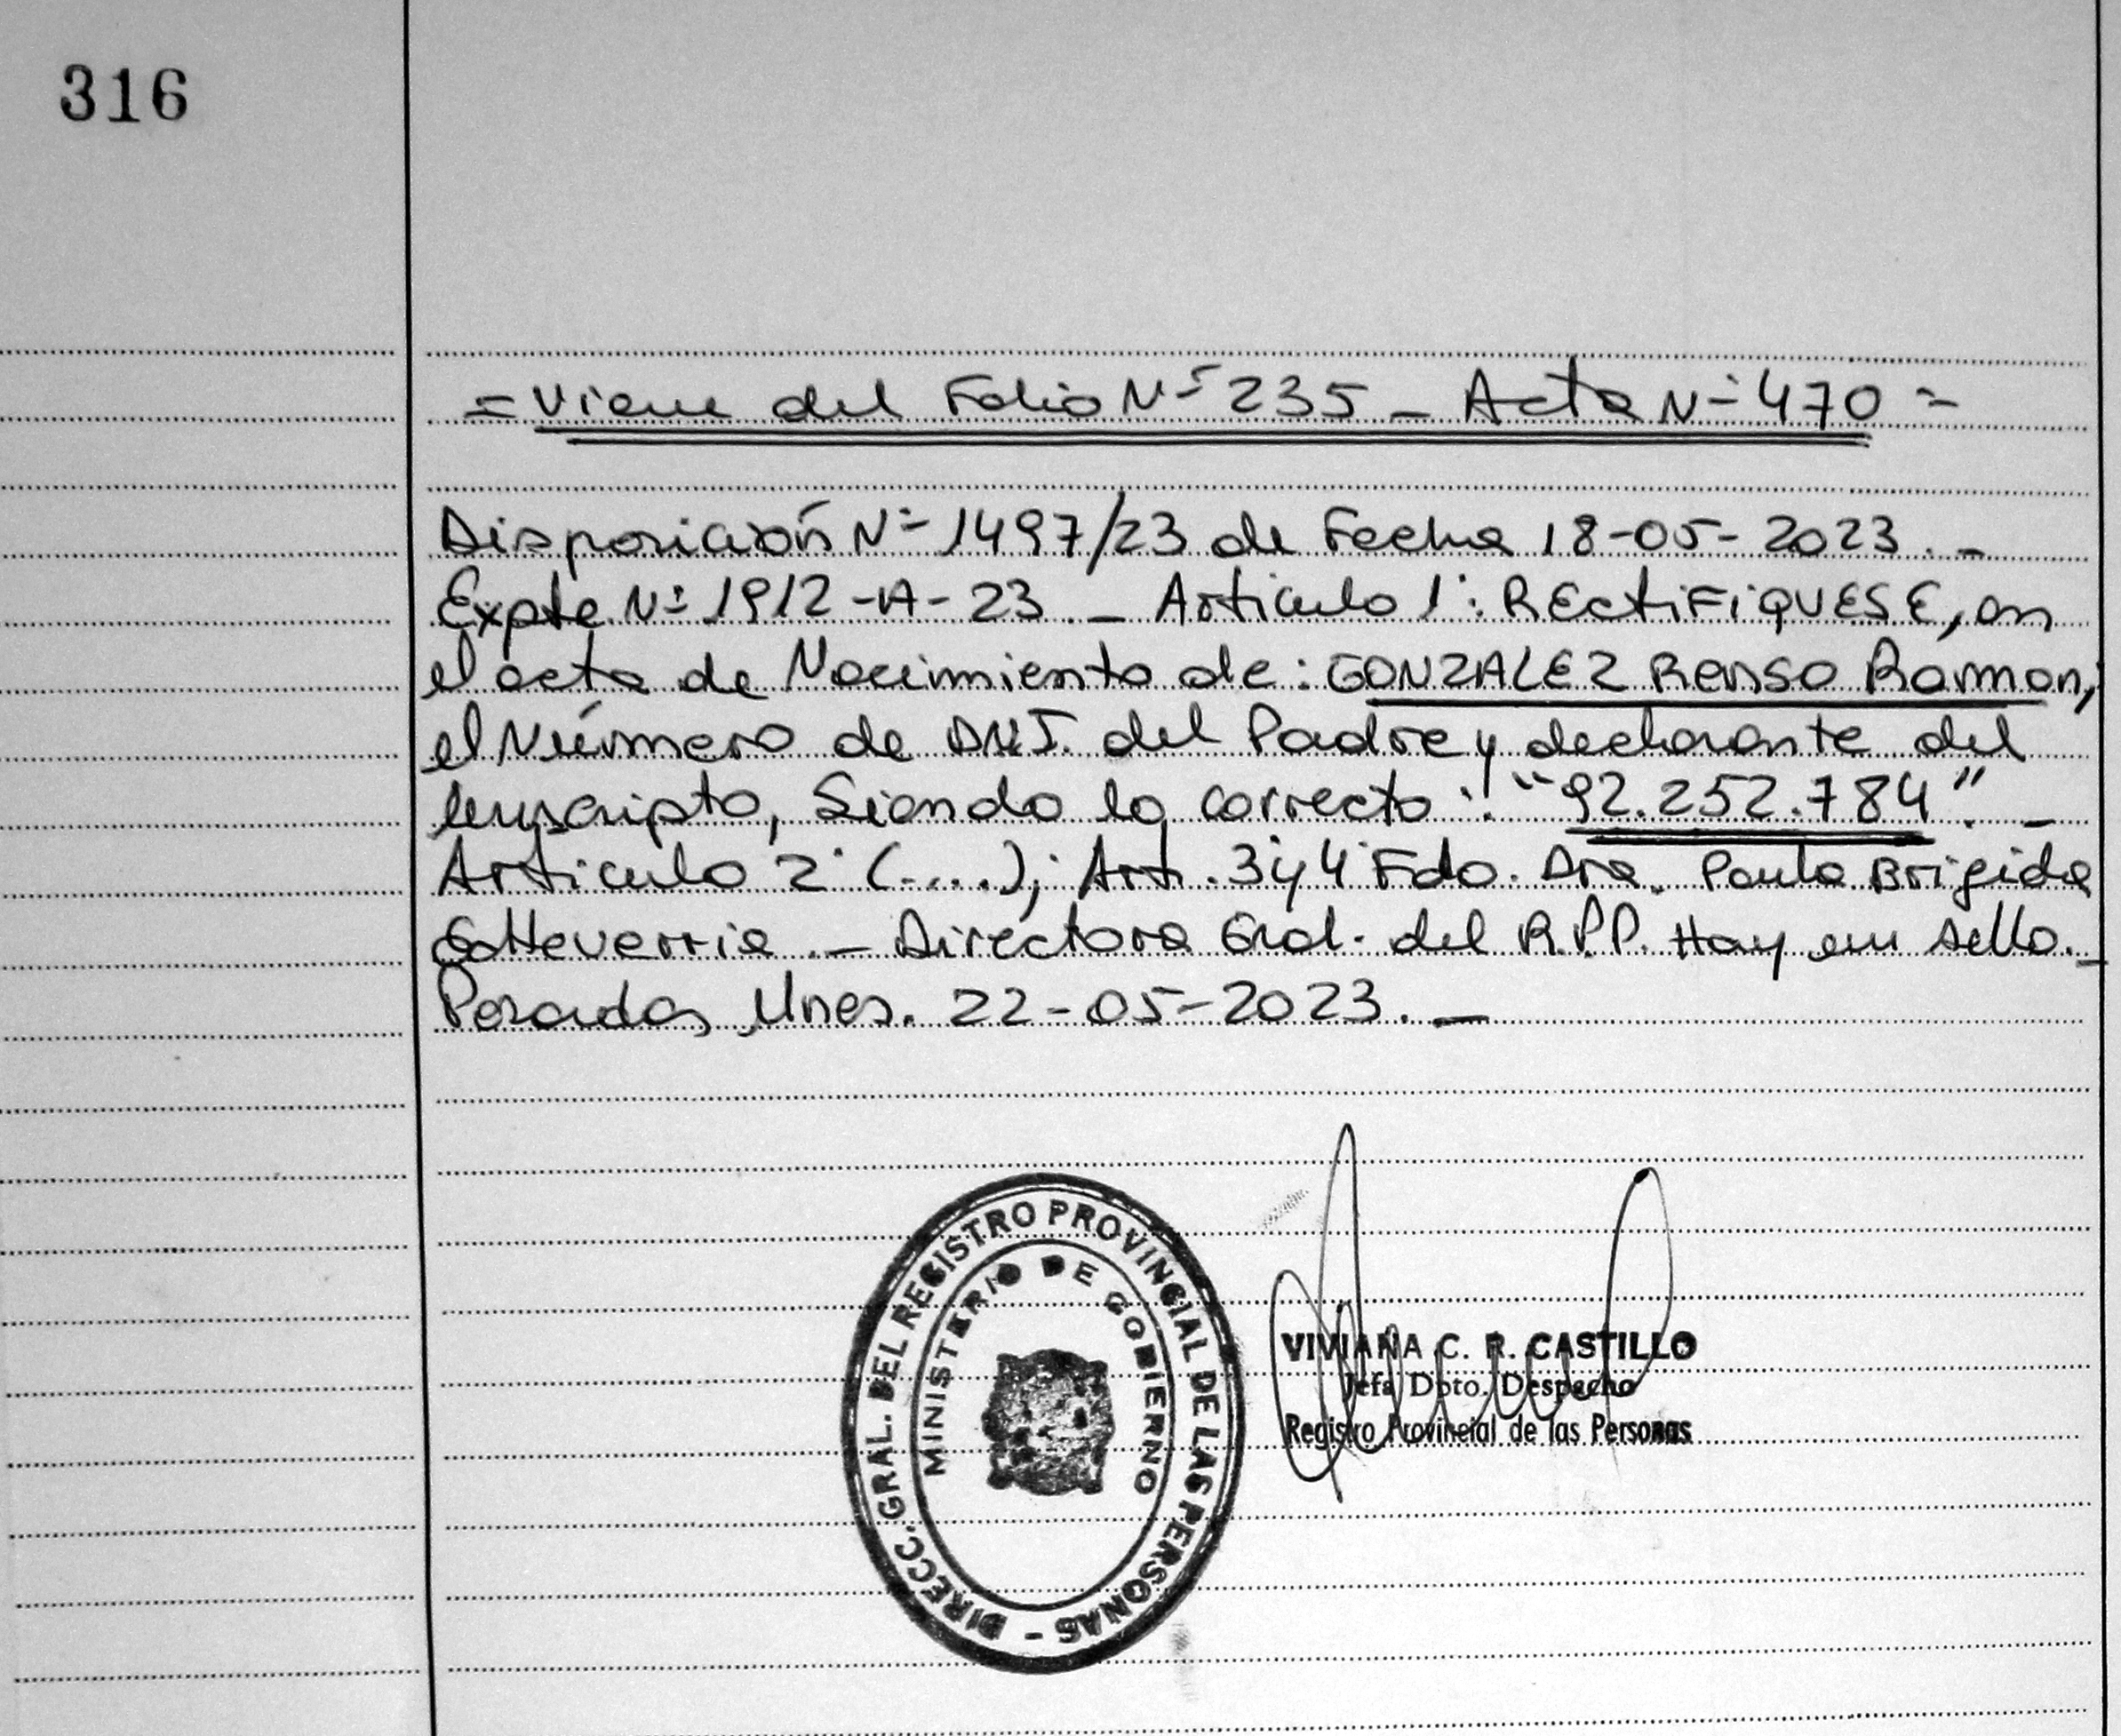 316
= Viene del Folio Nº 235 - Acta Nº 470 =
Disposición Nº 1497/23 de Fecha 18-05-2023. -
Expte Nº 1912-A-23. - Articulo 1º: RECtiFiQUESE, en
el acta de Nacimiento de: GONZALEZ Renso Ramon,
el Número de DNI. del Padre y declarante del
Inscripto, Siendo lo correcto: "92.252.784". -
Articulo 2º (....); Art. 3 y 4 Fdo. Dra. Paula Brigida
Etteverria. - Directora Gral. del R.P.P. Hay un sello. -
Posadas Mnes. 22-05-2023. -
DIRECC. GRAL. DEL REGISTRO PROVINCIAL DE LAS PERSONAS -
MINISTERIO DE GOBIERNO
VIVIANA C. R. CASTILLO
Jefa Dpto. Despacho
Registro Provincial de las Personas